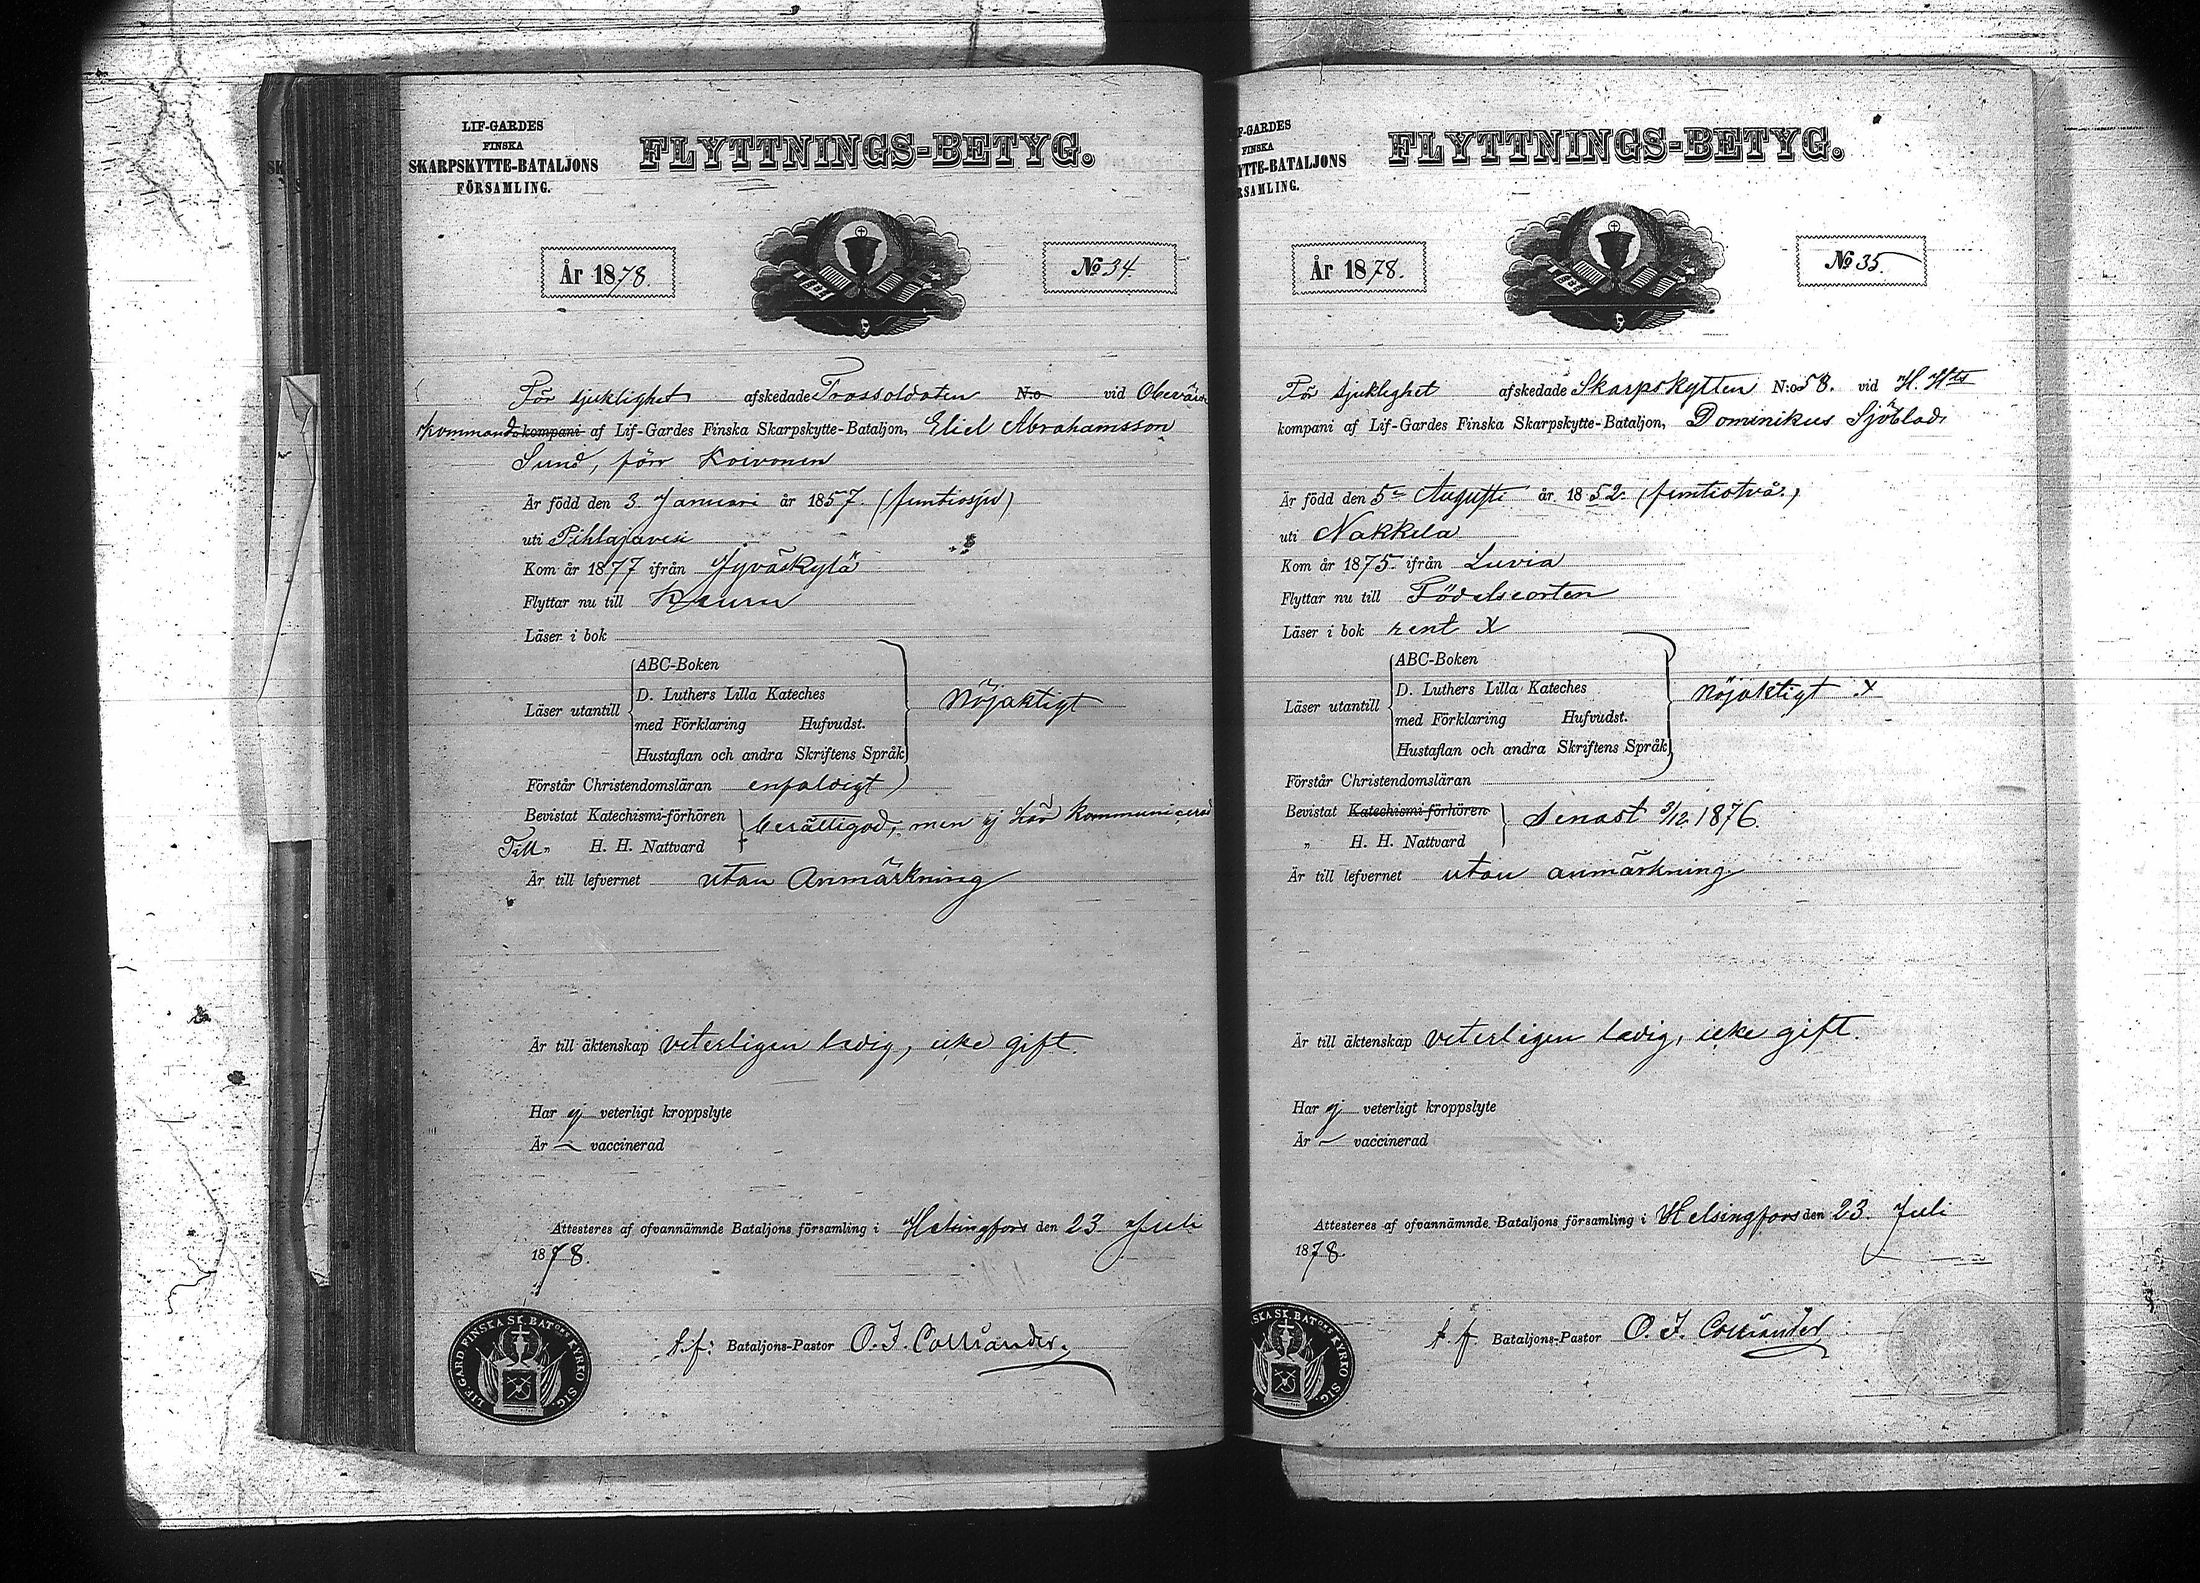 LIF-GARDES
FINSKA
SKARPSKYTTE-BATALJONS
FÖRSAMLING.
FLYTTNINGS-BETYG.
År 1878.
No 34.
För sjuklighet afskedade Trossoldaten N:o vid
Kommando kompani af Lif-Gardes Finska Skarpskytte-Bataljon, Eliel Abrahamsson
Sund, förr Koivonen
Är född den 3 Januari år 1857. (femtiosju)
uti Pihlajavesi
Kom år 1877 ifrån Jyväskylä
Flyttar nu till
Läser i bok
Läser utantill
ABC-Boken
D. Luthers Lilla Kateches
med Förklaring Hufvudst.
Hustaflan och andra Skriftens Språk
Nöjaktigt
Förstår Christendomsläran enfaldigt
Bevistat Katechismi-förhören
Till " H. H. Nattvard
berättigad, men ej här kommunicerad
Är till lefvernet utan Anmärkning
Är till äktenskap veterligen ledig, icke gift.
Har ej veterligt kroppslyte
Är ~ vaccinerad
Attesteres af ofvannämnde Bataljons församling i Helsingfors den 23 Juli
1878.
t.f: Bataljons-Pastor O. I. Colliander.
LIF.GARD FINSKA SK. BATONS KYRKO SIG.
F-GARDES
FINSKA
YTTE-BATALJONS
RSAMLING.
FLYTTNINGS-BETYG.
År 1878.
No 35.
För sjuklighet afskedade Skarpskytten N:o 58. vid H. H:ts
kompani af Lif-Gardes Finska Skarpskytte-Bataljon, Dominikus Sjöblad,
Är född den 5 Augusti år 1852. (femtiotvå.)
uti Nakkila
Kom år 1875. ifrån Luvia
Flyttar nu till Födelseorten
Läser i bok rent X
Läser utantill
ABC-Boken
D. Luthers Lilla Kateches
med Förklaring Hufvudst.
Hustaflan och andra Skriftens Språk
Nöjaktigt X
Förstår Christendomsläran
Bevistat Katechismi-förhören
" H. H. Nattvard
Senast 3/12 1876.
Är till lefvernet utan anmärkning.
Är till äktenskap veterligen ledig, icke gift.
Har ej veterligt kroppslyte
Är ~ vaccinerad
Attesteres af ofvannämnde Bataljons församling i Helsingfors den 23. Juli
1878.
t.f. Bataljons-Pastor O. I. Colliander
SKA SK. BATONS KYRKO SIG.